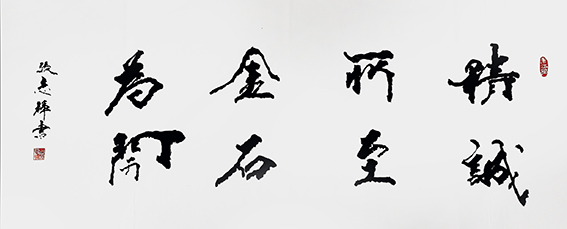 精誠
所至
金石
為開
張志輝書